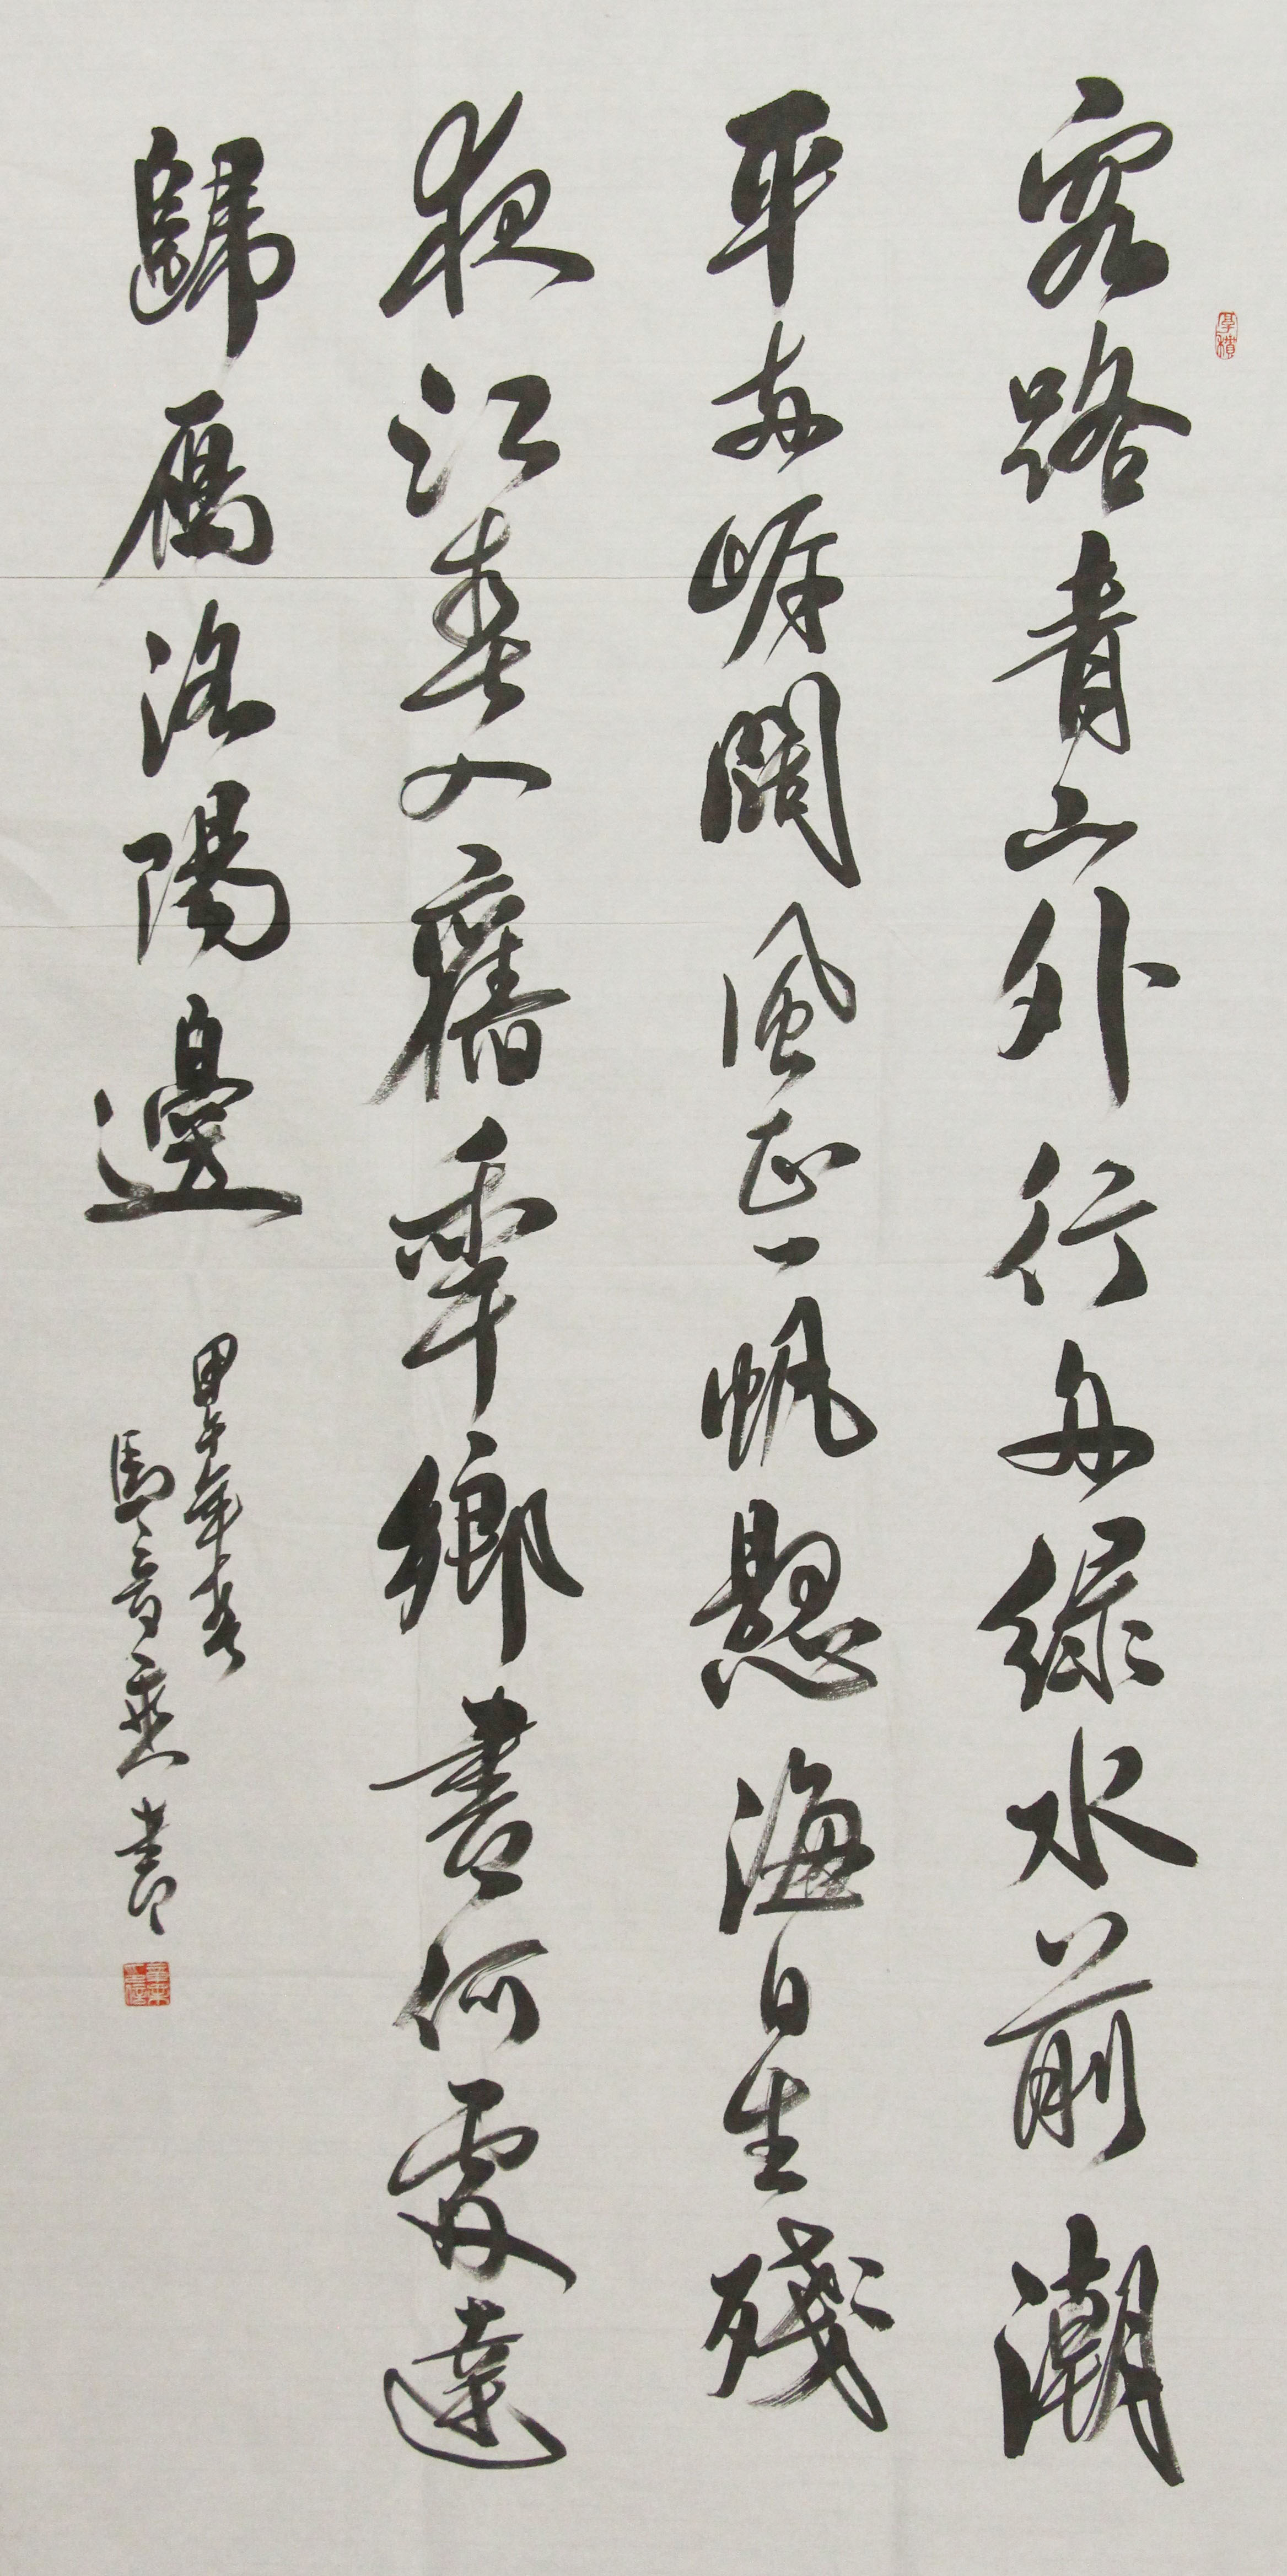 厚積
客路青山外行舟綠水前潮
平兩岸闊風正一帆懸海日生殘
夜江春入舊年鄉書何處達
歸鴈洛陽邊
甲午年春
書